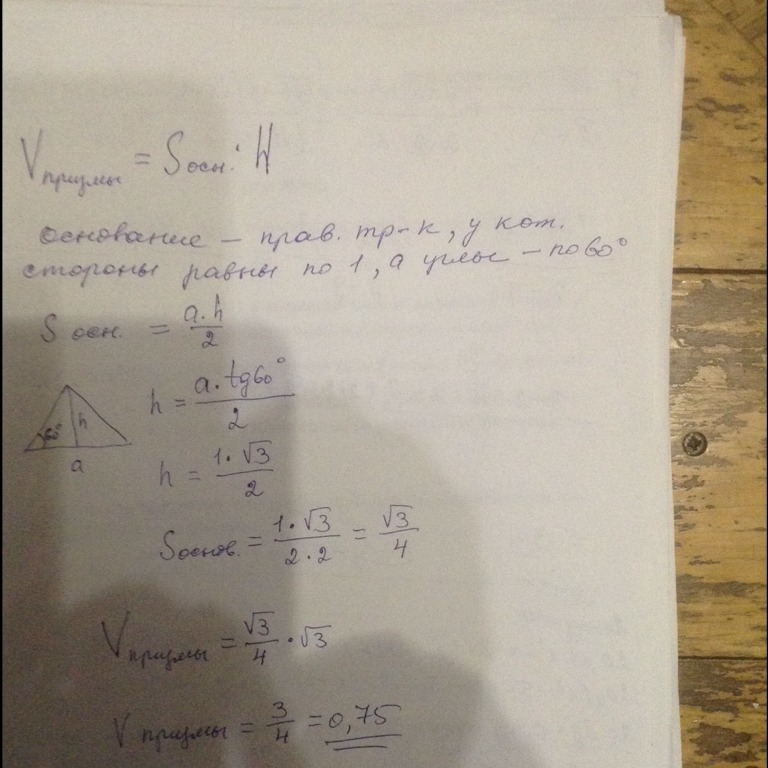 Vпризмы = Sосн. · H
основание – прав. тр-к, у кот.
стороны равны по 1, а углы – по 60°
S осн. = a·h/2
h = a·tg60°/2
60° h
a
h = 1·√3/2
Sоснов. = 1·√3/2·2 = √3/4
Vпризмы = √3/4 · √3
V призмы = 3/4 = 0,75